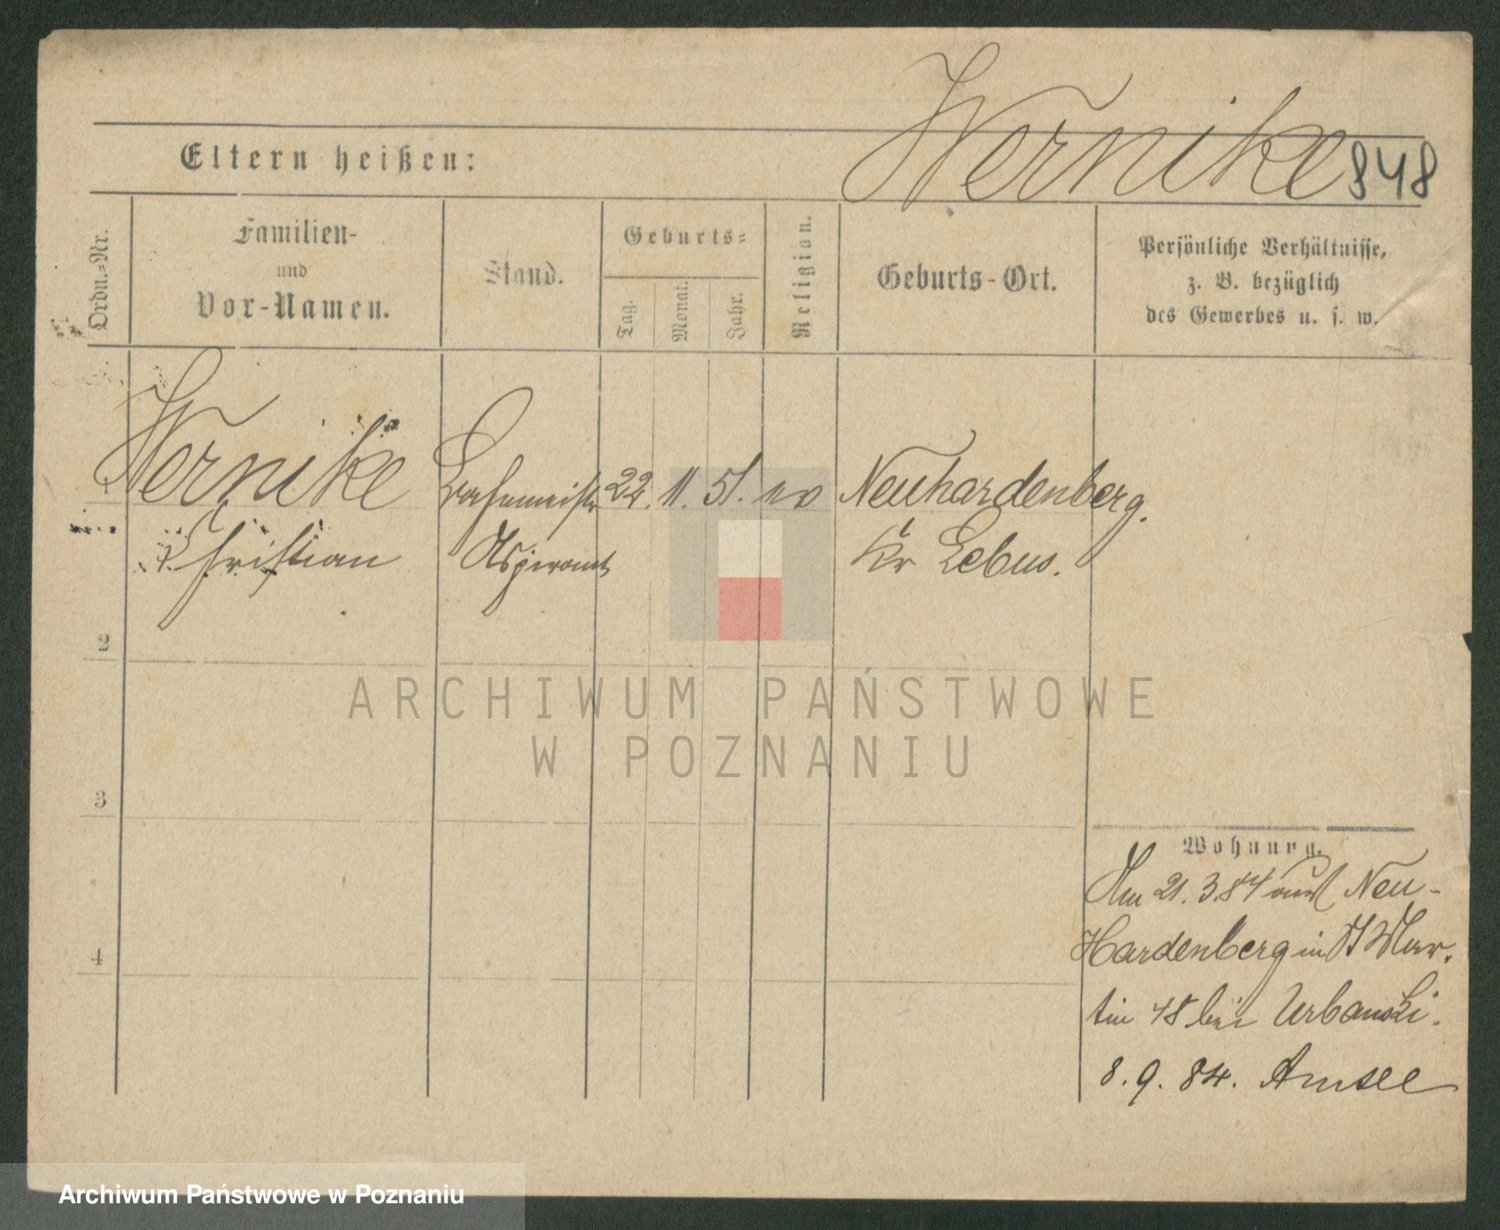 Wernike 848
Eltern heißen:
Ordn.-Nr.
Familien-
und
Vor-Namen.
Stand.
Geburts-
Tag.
Monat.
Jahr.
Religion.
Geburts-Ort.
Persönliche Verhältnisse,
z. B. bezüglich
des Gewerbes u. s. w.
1
Wernike
Christian
22. 11. 51.
Neuhardenberg.
Kr Lebus.
2
3
4
Wohnung.
Am 21. 3. 84 aus Neu-
Hardenberg in St Mar-
tin 48 bei Urbanski.
8. 9. 84. Amsee
ARCHIWUM PAŃSTWOWE
W POZNANIU
Archiwum Państwowe w Poznaniu